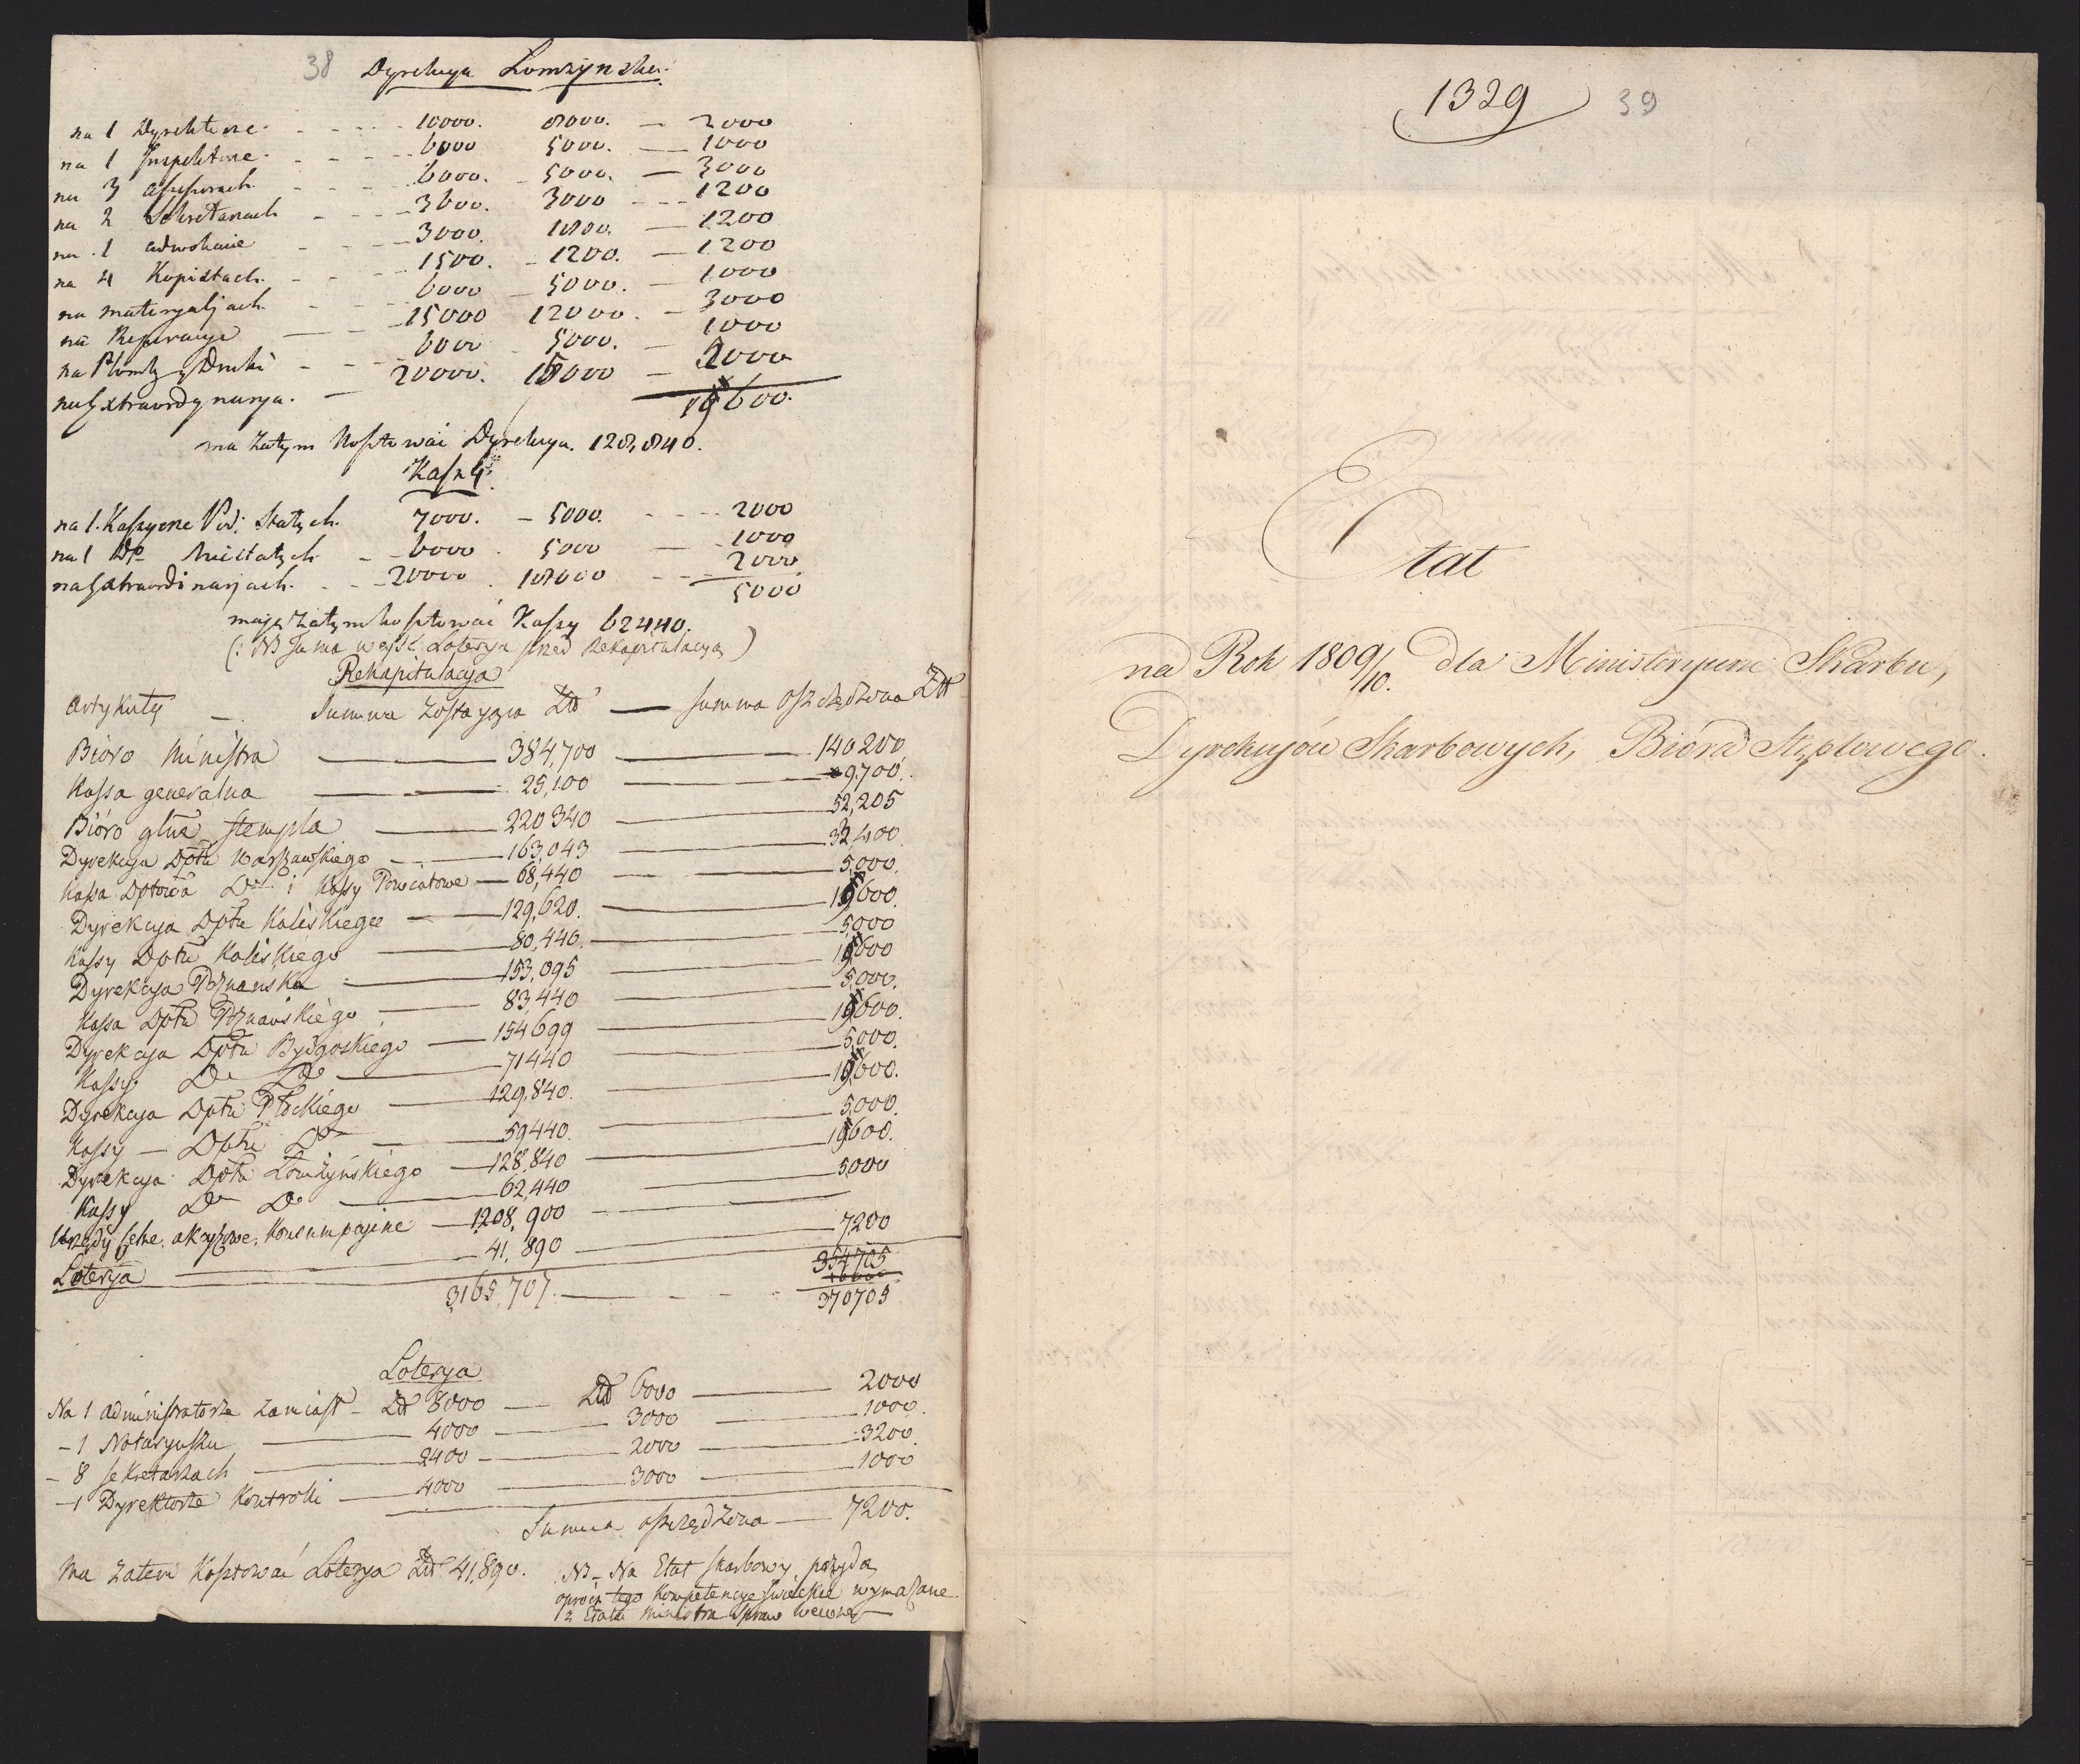 38 Dyrekcya Łomżyńska.
na 1 Dyrektorze. 10000. 8000. — 2000
na 1 Inspektorze. 6000 5000. — 1000
na 3 Assessorach. 6000. 5000. — 3000
na 2 Sekretarzach 3600. 3000 1200
na 1 adwokacie 3000. 1800. — 1200
na 4 Kopistach. 1500. 1200. — 1200
na materyaljach. 6000 5000. — 1000
na Reperacye 15000 12000. — 3000
na Plomby y Druki 6000 5000. — 1000
na Extraordynarya. 20000. 18000 — 2000
16600.
ma zatym Kosztować Dyrekcya. 128,840.
Kassy.
na 1. Kassyerze Pod: Stałych. 7000. — 5000. 2000
na 1 Do Niestałych 6000. 5000 — 1000
na Extraordinarjach. 20000. 18000 2000.
5000
mają zatym kosztować Kassy 62440.
(: NB Tu ma wejść Loterya przed Rekapitulacyą )
Rekapitulacja
Artykuły — Summa zostająca Złł — summa oszczędzona Złł
Bióro Ministra — 384,700 — 140200
Kassa generalna — 25,100 — 9,700.
Bióro głłne stempla — 220340 — 52,205
Dyrekcya Dptu Warszawskiego — 163,043 — 32,400
Kassa Dptowa Do i Kassy Powiatowe — 68,440 — 5,000.
Dyrekcya Dptu Kaliskiego — 129,620. — 16600.
Kassy Dptu Kaliskiego — 80,440. — 5,000
Dyrekcya Poznańska — 153,095 — 16600
Kassa Dptu Poznańskiego — 83,440 — 5,000.
Dyrekcya Dptu Bydgoskiego — 154699 — 16600.
Kassy Do Do — 71440 — 5,000.
Dyrekcya Dptu Płockiego — 129,840. — 16600.
Kassy — Dptu Do — 59440. — 5,000.
Dyrekcya Dptu Łomżyńskiego — 128,840 — 16600.
Kassy Do Do — 62,440 — 5,000
Urzędy celne, akcyzowe, Konsumpcyjne — 1208,900 —
Loterja — 41,890 — 7200
354705
3165,707. — 370705
Loterja
Na 1 administratorze zamiast — Złł 8000 — Złł 6000 — 2000
— 1 Notaryuszu — 4000 — 3000 — 1000.
— 8 sekretarzach — 2400 — 2000 — 3200
— 1 Dyrektorze Kontrolli — 4000 — 3000 — 1000
Summa oszczędzona — 7200.
Ma zatem Kosztować Loterja Złł 41,890.
NB — Na Etat skarbowy przyjdą
oprócz tego Kompetencye świeckie wymazane
z Etatu Ministra spraw wewnę
1329 39
Etat
na Rok 1809/10. dla Ministeryum Skarbu,
Dyrekcyów Skarbowych, Bióra Stęplowego.